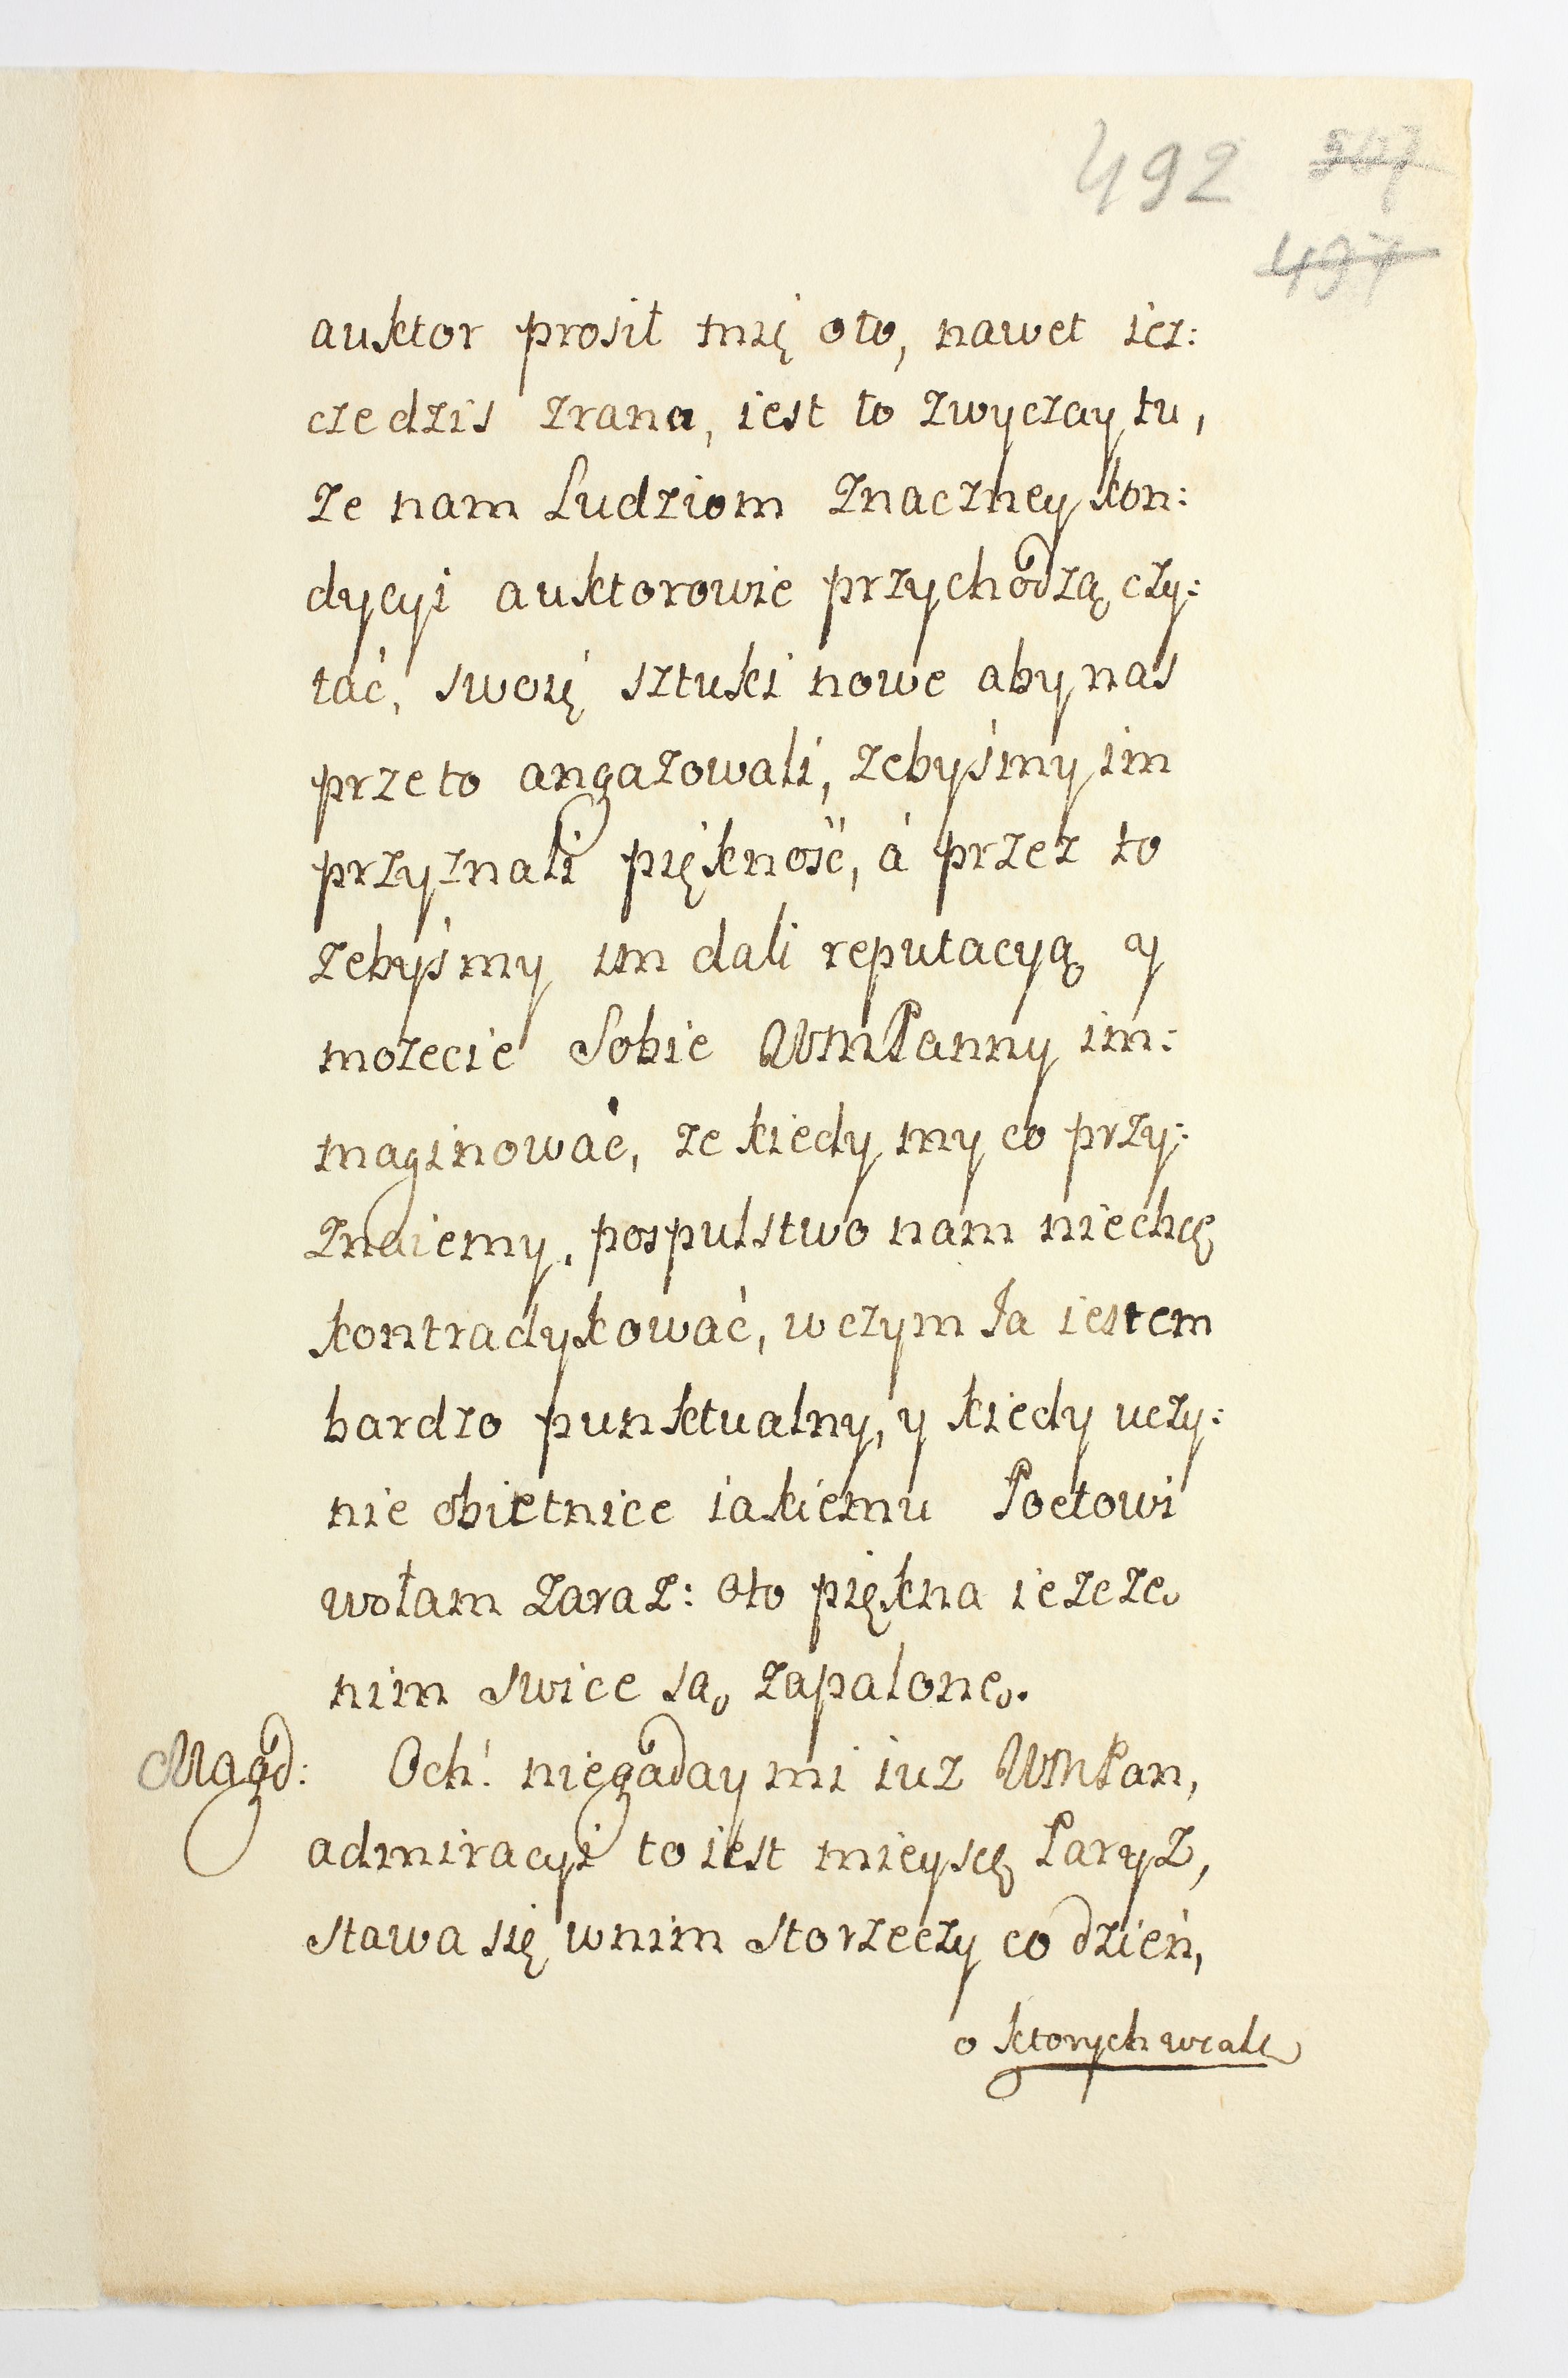 492 507
497
auktor prosił mię oto, nawet iesz:
cze dzis zrana, iest to zwyczay tu,
że nam Ludziom znaczney kon:
dycyi auktorowie przychodzą czy:
tać, swoię sztuki nowe aby nas
przeto angazowali, zebyśmy im
przyznali piękność, á przez to
zebyśmy im dali reputacyą y
mozecie Sobie WMPanny im:
maginować, ze kiedy my co przy:
znaiemy, pospulstwo nam niechcę
kontradykować, wczym Ia iestem
bardzo punktualny, y kiedy uczy:
nie obietnice iakiemu Poetowi
wołam zaraz: oto piękna ieze ze
nim swice są, zapalone.
Magd: Och! niegaday mi iuz WMPan,
admiracyi to iest mieyscę Paryz,
stawa się wnim sto rzeczy co dzień,
o ktorych wcale